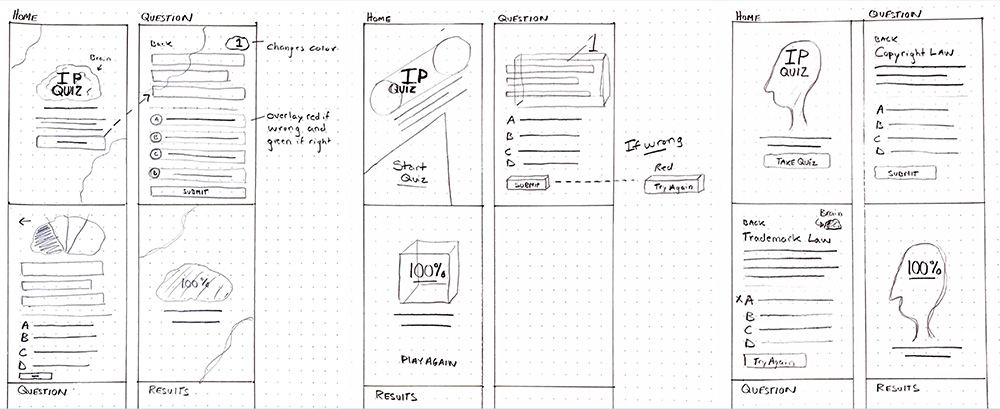 HOME
QUESTION
IP
QUIZ
Brain
BACK
1
changes color
overlay red if
wrong and
green if right
A
B
C
D
SUBMIT
A
B
C
D
QUESTION
100%
RESULTS
HOME
QUESTION
IP
QUIZ
Start
Quiz
1
A
B
C
D
SUBMIT
If wrong
Red
Try Again
100%
PLAY AGAIN
RESULTS
HOME
QUESTION
IP
QUIZ
TAKE QUIZ
BACK
Copyright LAW
A
B
C
D
SUBMIT
BACK
Brain
Trademark Law
X A
B
C
D
Try Again
QUESTION
100%
RESULTS